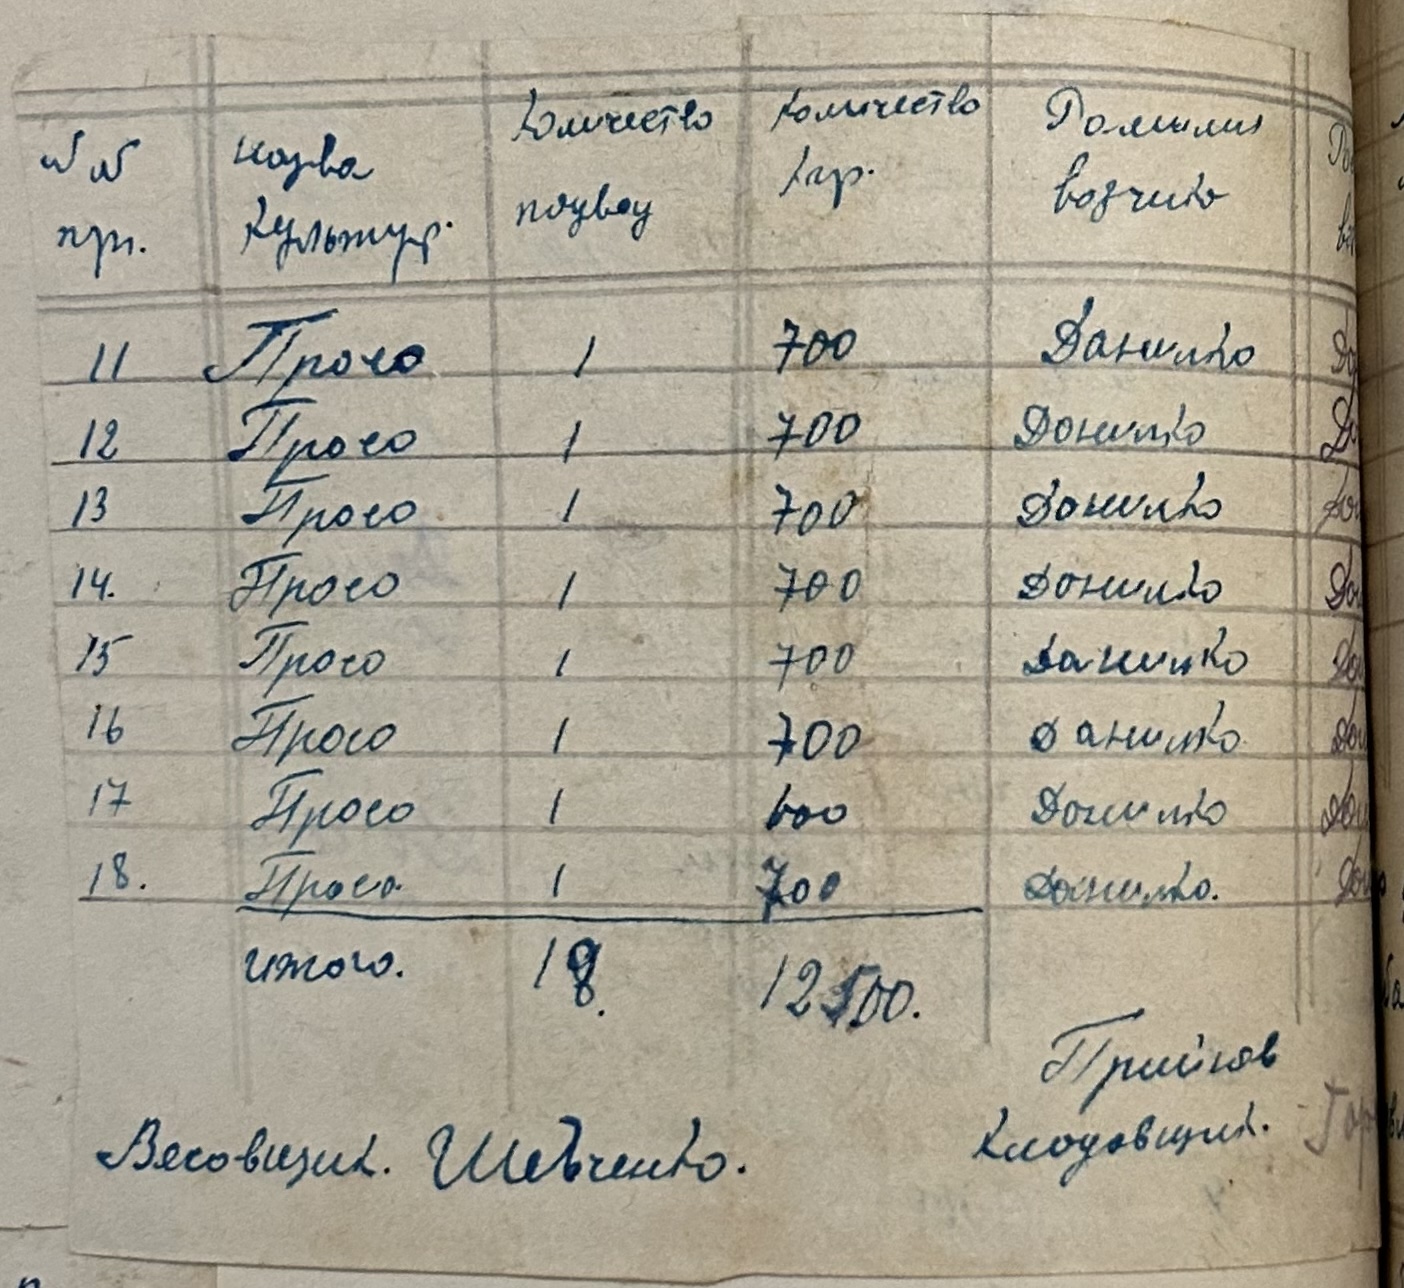 №№ пр. назва культур. Количество подвод количество кгр. Фамилия возчика
11 Просо 1 700 Данилко
12 Просо 1 700 Данилко
13 Просо 1 700 Данилко
14. Просо 1 700 Данилко
15 Просо 1 700 Данилко
16 Просо 1 700 Данилко
17 Просо 1 600 Данилко
18. Просо 1 700 Данилко.
итого. 18. 12500.
Прийняв
Весовщик. Шевченко. кладовщик.